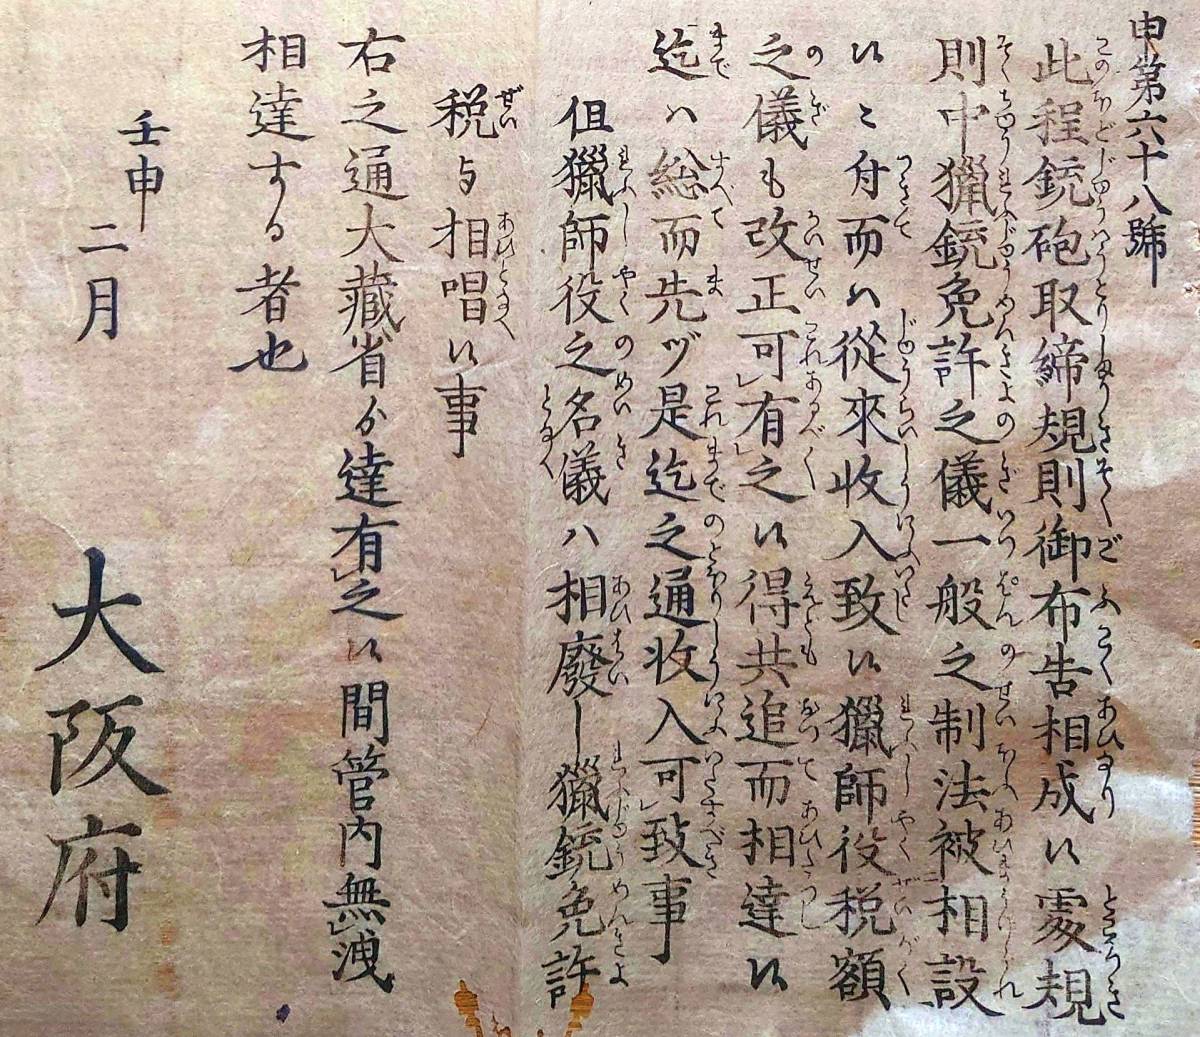 申第六十八號
此程銃砲取締規則御布告相成候處規
則中獵銃免許之儀一般之制法被相設
候ニ付而ハ從來收入致候獵師役税額
之儀も改正可有之候得共追而相達候
迄ハ総而先ヅ是迄之通收入可致事
但獵師役之名儀ハ相廢し獵銃免許
税与相唱候事
右之通大藏省ゟ達有之候間管内無洩
相達する者也
壬申二月
大阪府